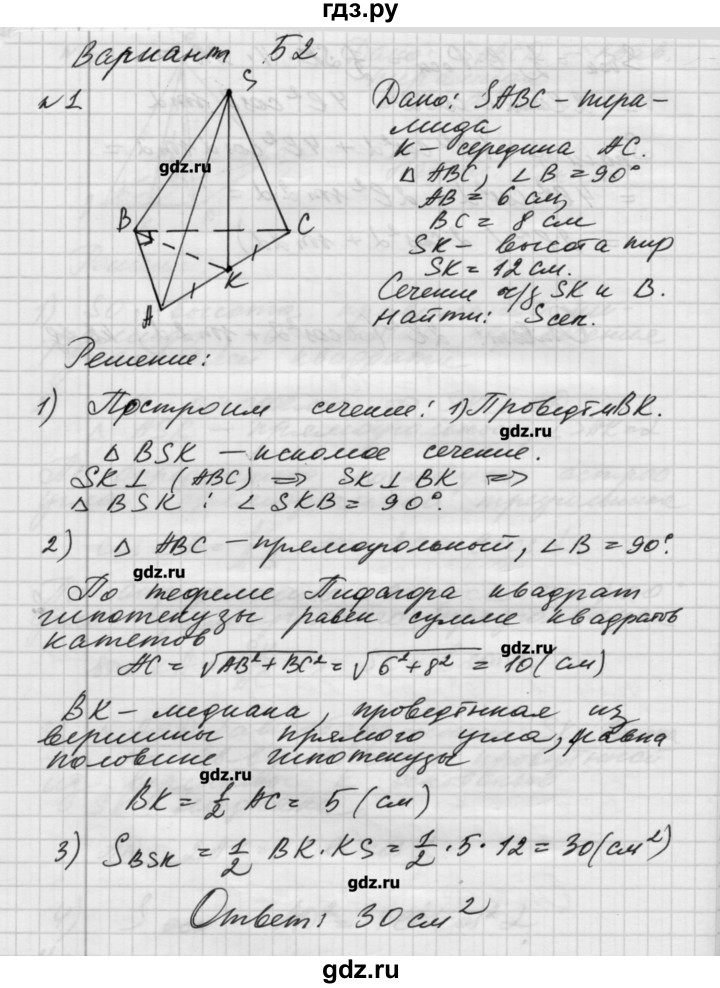 гдз.ру
Вариант Б2
№1
S
B
C
K
A
gdz.ru
Дано: SABC – пира-
мида
К – середина АС.
Δ ABC, ∠B = 90°
AB = 6 см
BC = 8 см
SK – высота пир
SK = 12 см.
Сечение ч/з SK и В.
Найти: Sсеч.
Решение:
1) Построим сечение: 1) Проведём ВК.
gdz.ru
Δ BSK – искомое сечение.
SK ⊥ (ABC) ⇒ SK ⊥ BK ⇒
Δ BSK : ∠ SKB = 90°.
2) Δ ABC – прямоугольный, ∠ B = 90°.
gdz.ru
По теореме Пифагора квадрат
гипотенузы равен сумме квадратов
катетов
gdz.ru
AC = √AB²+BC² = √6²+8² = 10 (см)
ВК – медиана, проведённая из
вершины прямого угла, равна
половине гипотенузы
gdz.ru
BK = 1/2 AC = 5 (см)
3) S BSK = 1/2 BK · KS = 1/2 · 5 · 12 = 30 (см²)
gdz.ru
Ответ: 30 см²
gdz.ru